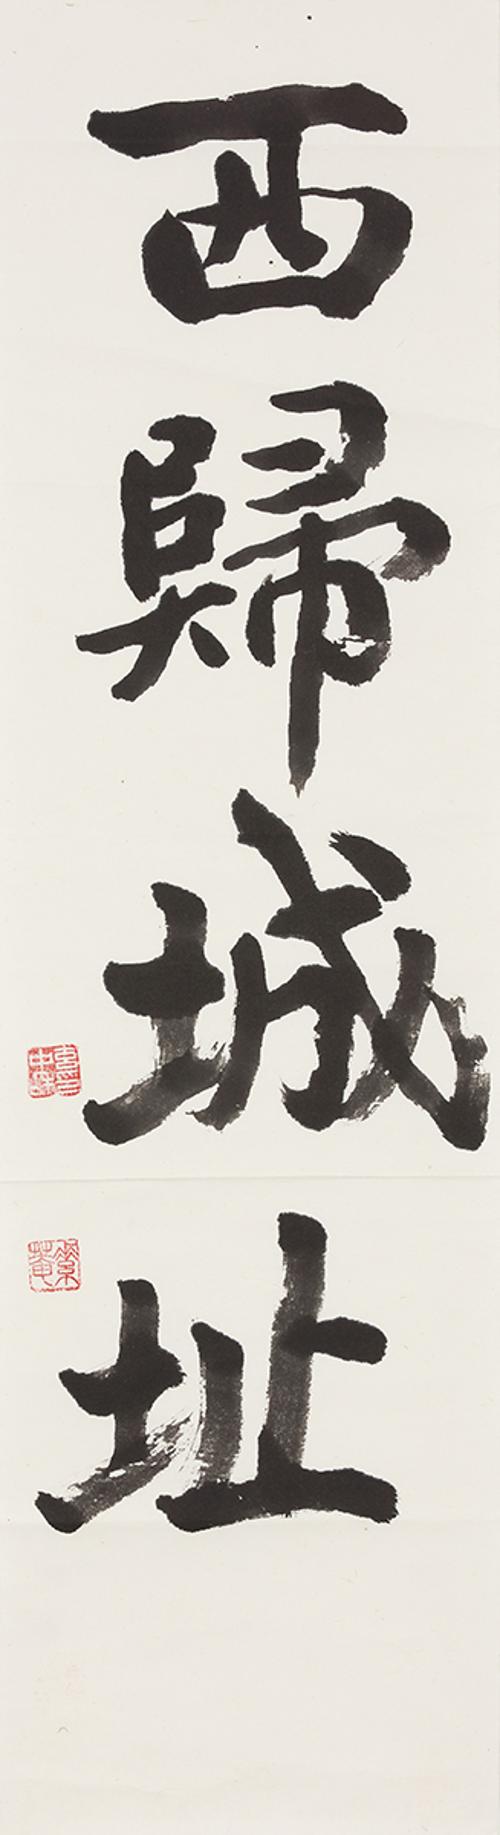 西歸城址